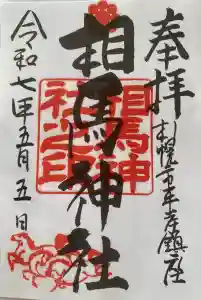 奉拝
札幌市平岸鎮座
相馬神社
相馬神社之印
令和七年五月五日